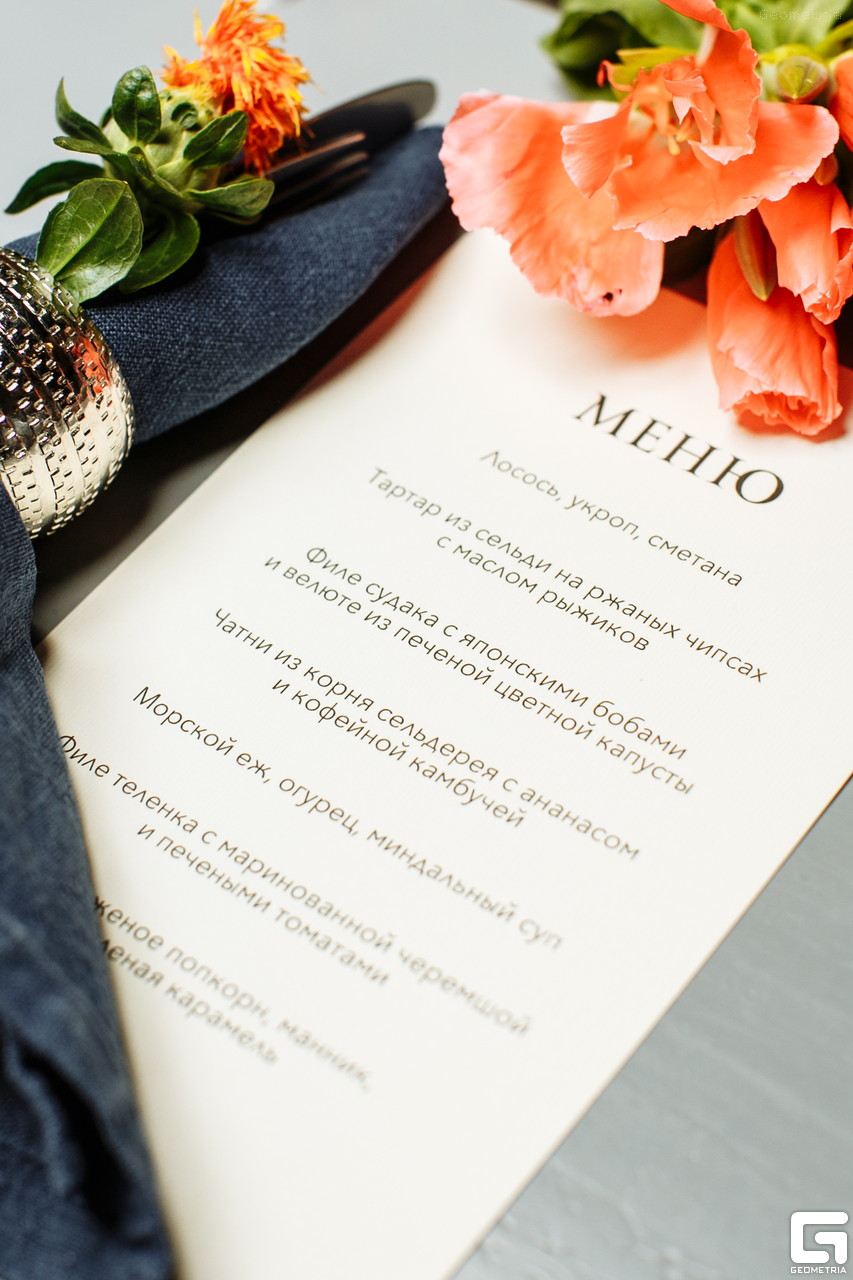 МЕНЮ
Лосось, укроп, сметана
Тартар из сельди на ржаных чипсах
с маслом рыжиков
Филе судака с японскими бобами
и велюте из печеной цветной капусты
Чатни из корня сельдерея с ананасом
и кофейной камбучей
Морской еж, огурец, миндальный суп
Филе теленка с маринованной черемшой
и печеными томатами
женое попкорн, манник,
леная карамель
GEOMETRIA